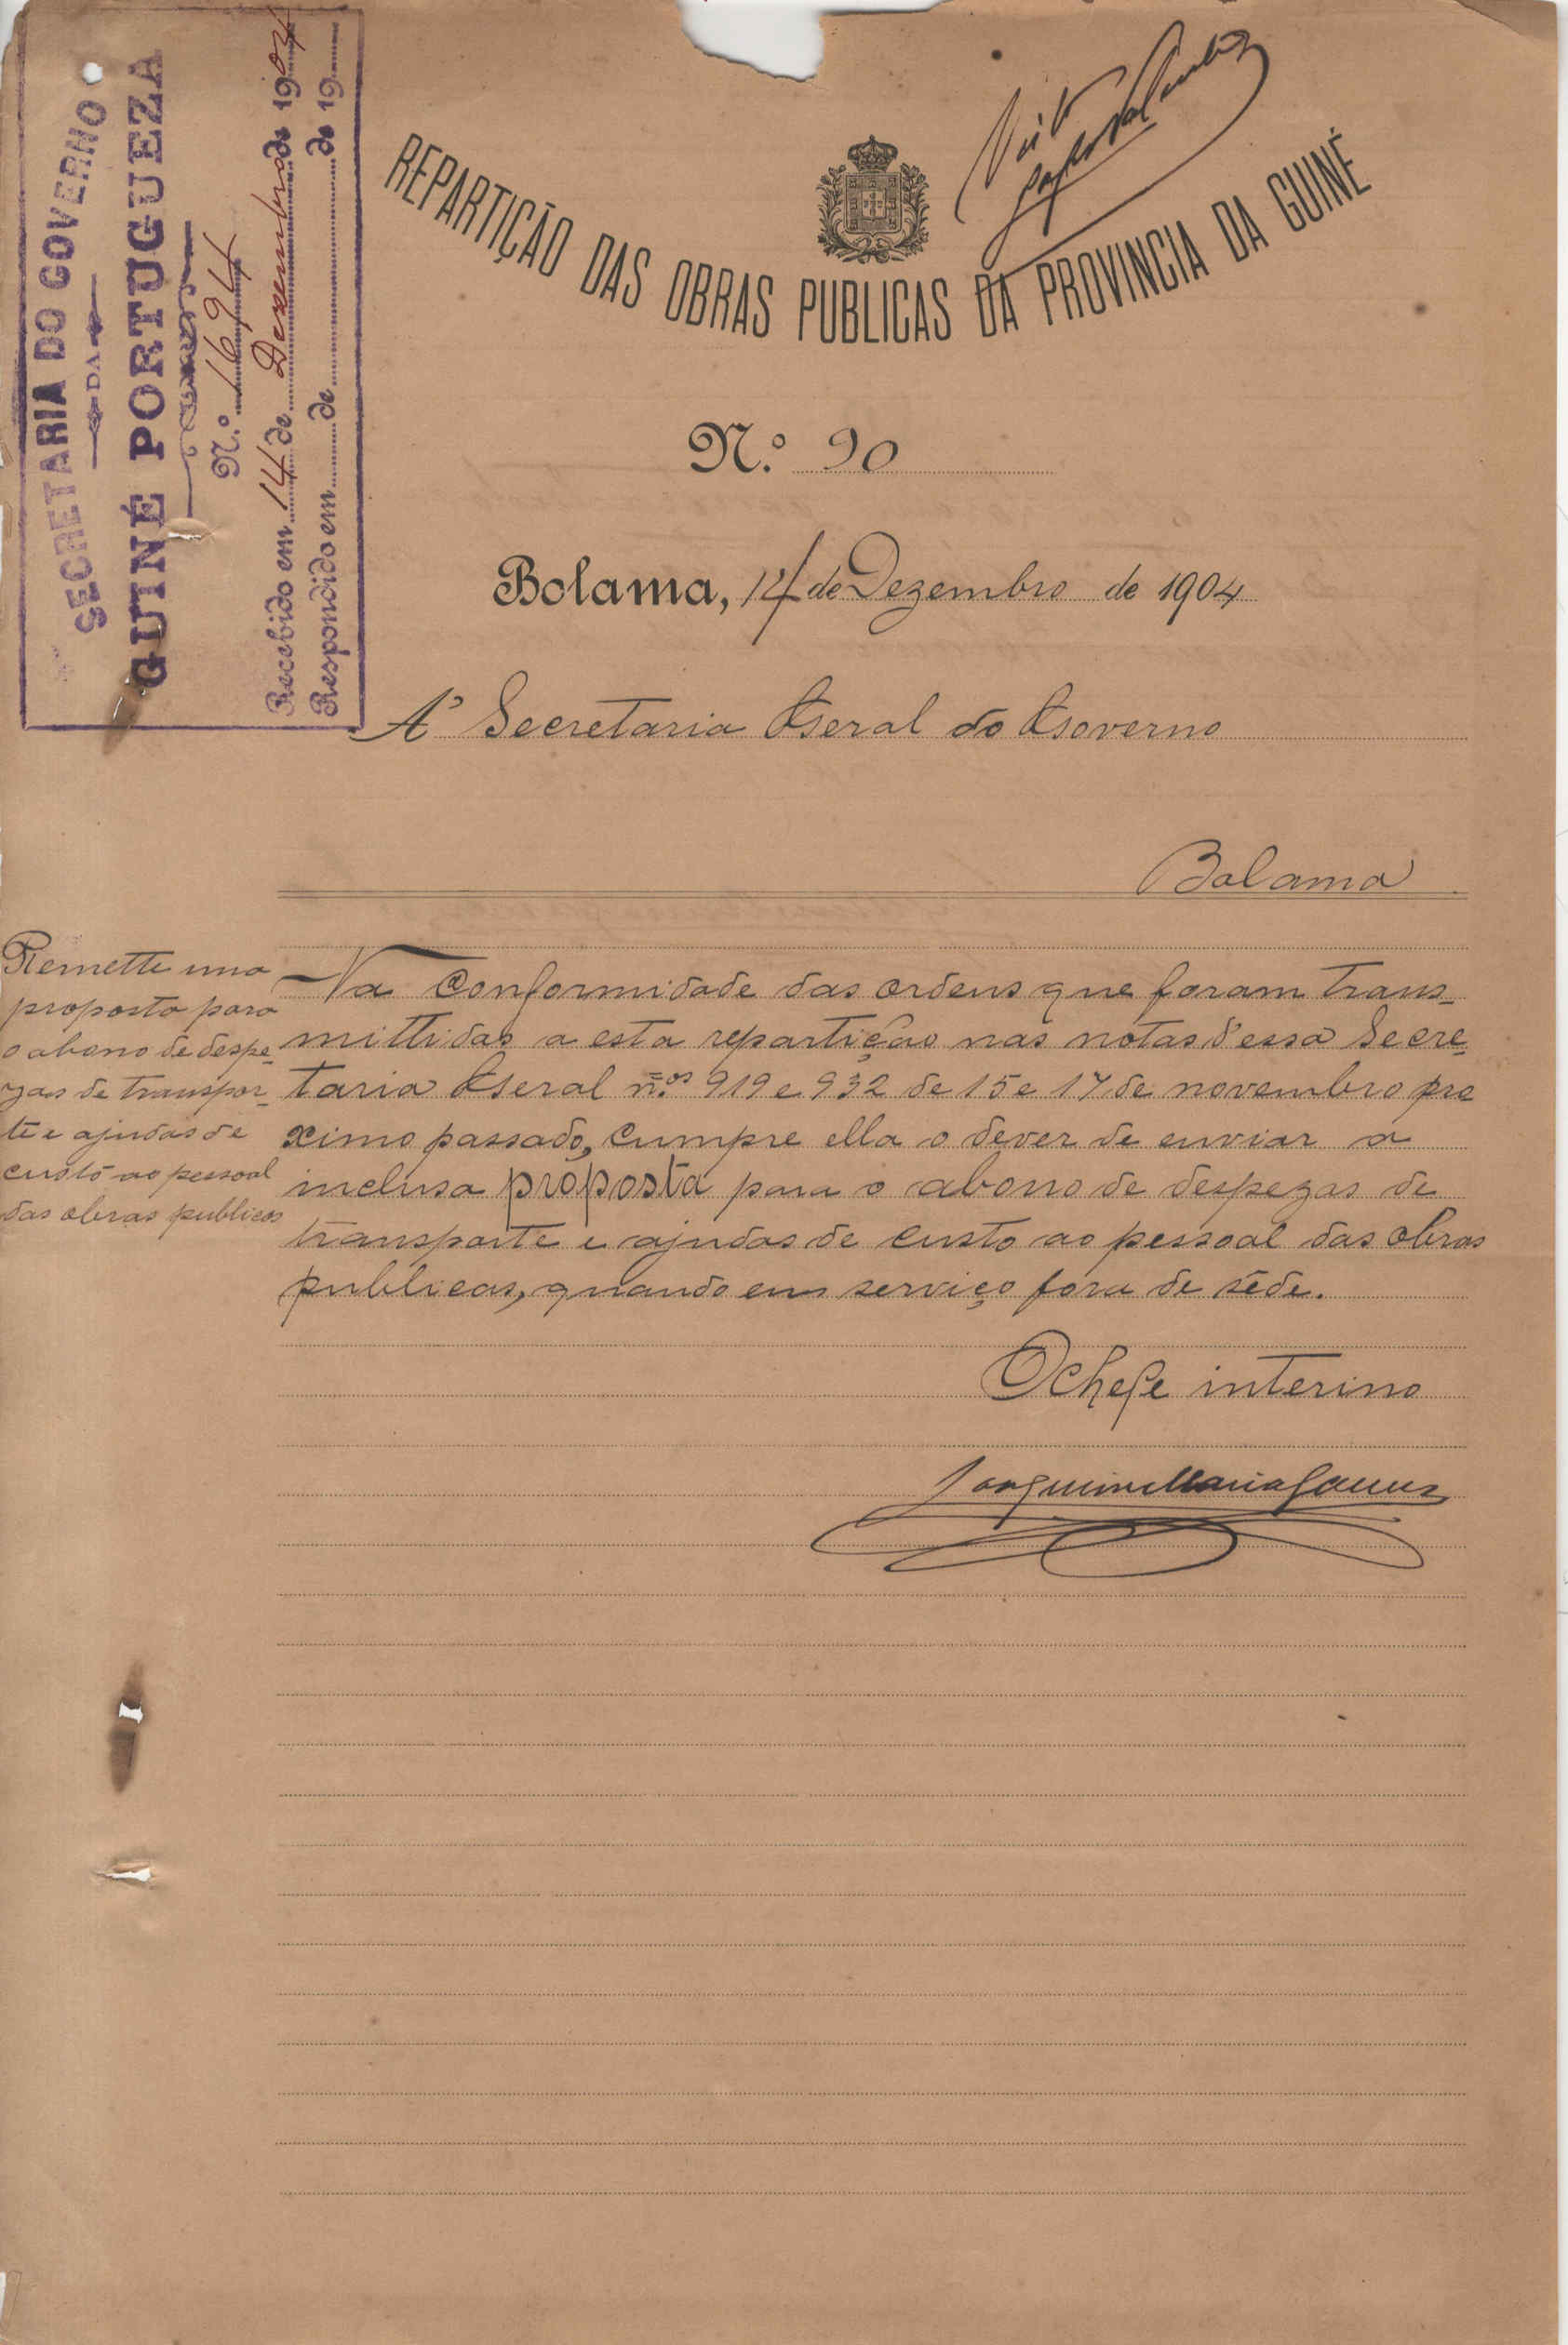 SECRETARIA DO GOVERNO
DA
GUINÉ PORTUGUEZA
N.º 1694
Recebido em 14 de Dezembro de 1904
Respondido em de de 19
Visto
REPARTIÇÃO DAS OBRAS PUBLICAS DA PROVINCIA DA GUINÉ
N.º 90
Bolama, 14 de Dezembro de 1904
A' Secretaria Geral do Governo
Bolama
Remette uma
proposta para
o abono de despe-
zas de transpor-
te e ajudas de
custo ao pessoal
das obras publicas
Na conformidade das ordens que foram trans-
mittidas a esta repartição nas notas d'essa Secre-
taria Geral n.os 919 e 932 de 15 e 17 de novembro pro
ximo passado, cumpre ella o dever de enviar a
inclusa proposta para o abono de despezas de
transporte e ajudas de custo ao pessoal das obras
publicas, quando em serviço fora de séde.
O Chefe interino
Joaquim Maria